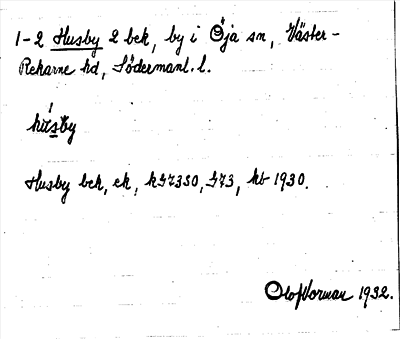 1-2 Husby 2 bek, by i Öja sn, Väster-
Rekarne hd, Södermanl. l.
husby
Husby bek, ek, kb 1930.
Olof Norman 1932.